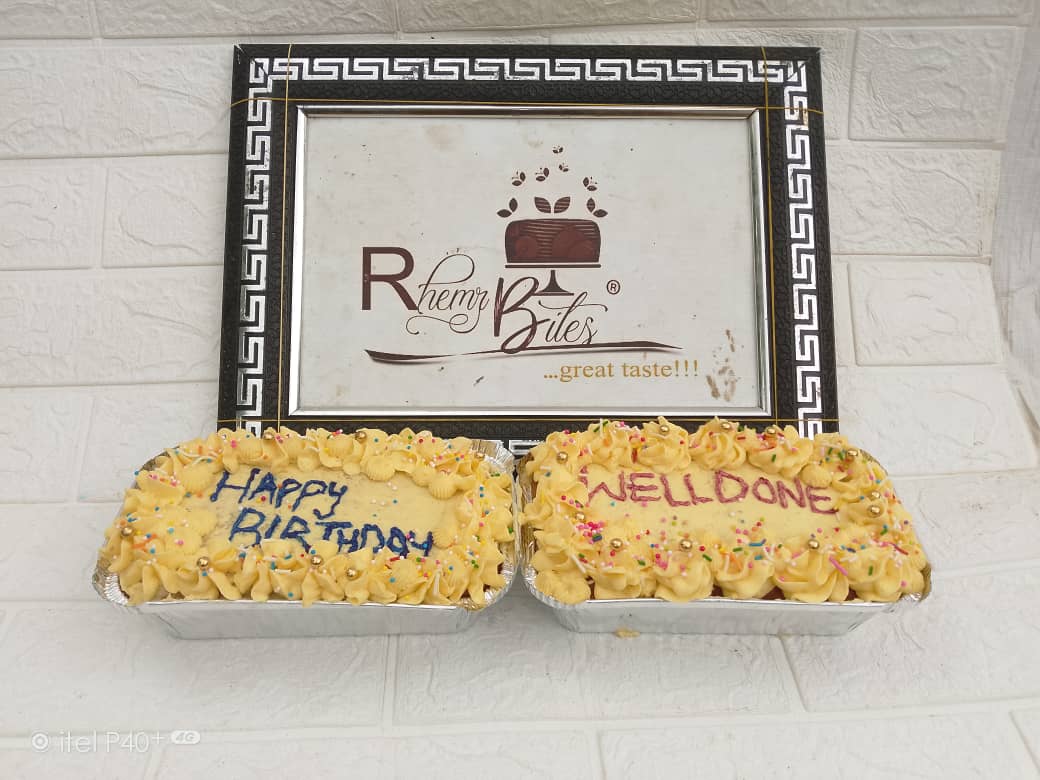 Rhemz
Bites ®
...great taste!!!
HAPPY
BIRTHDAY
WELLDONE
itel P40+ 4G